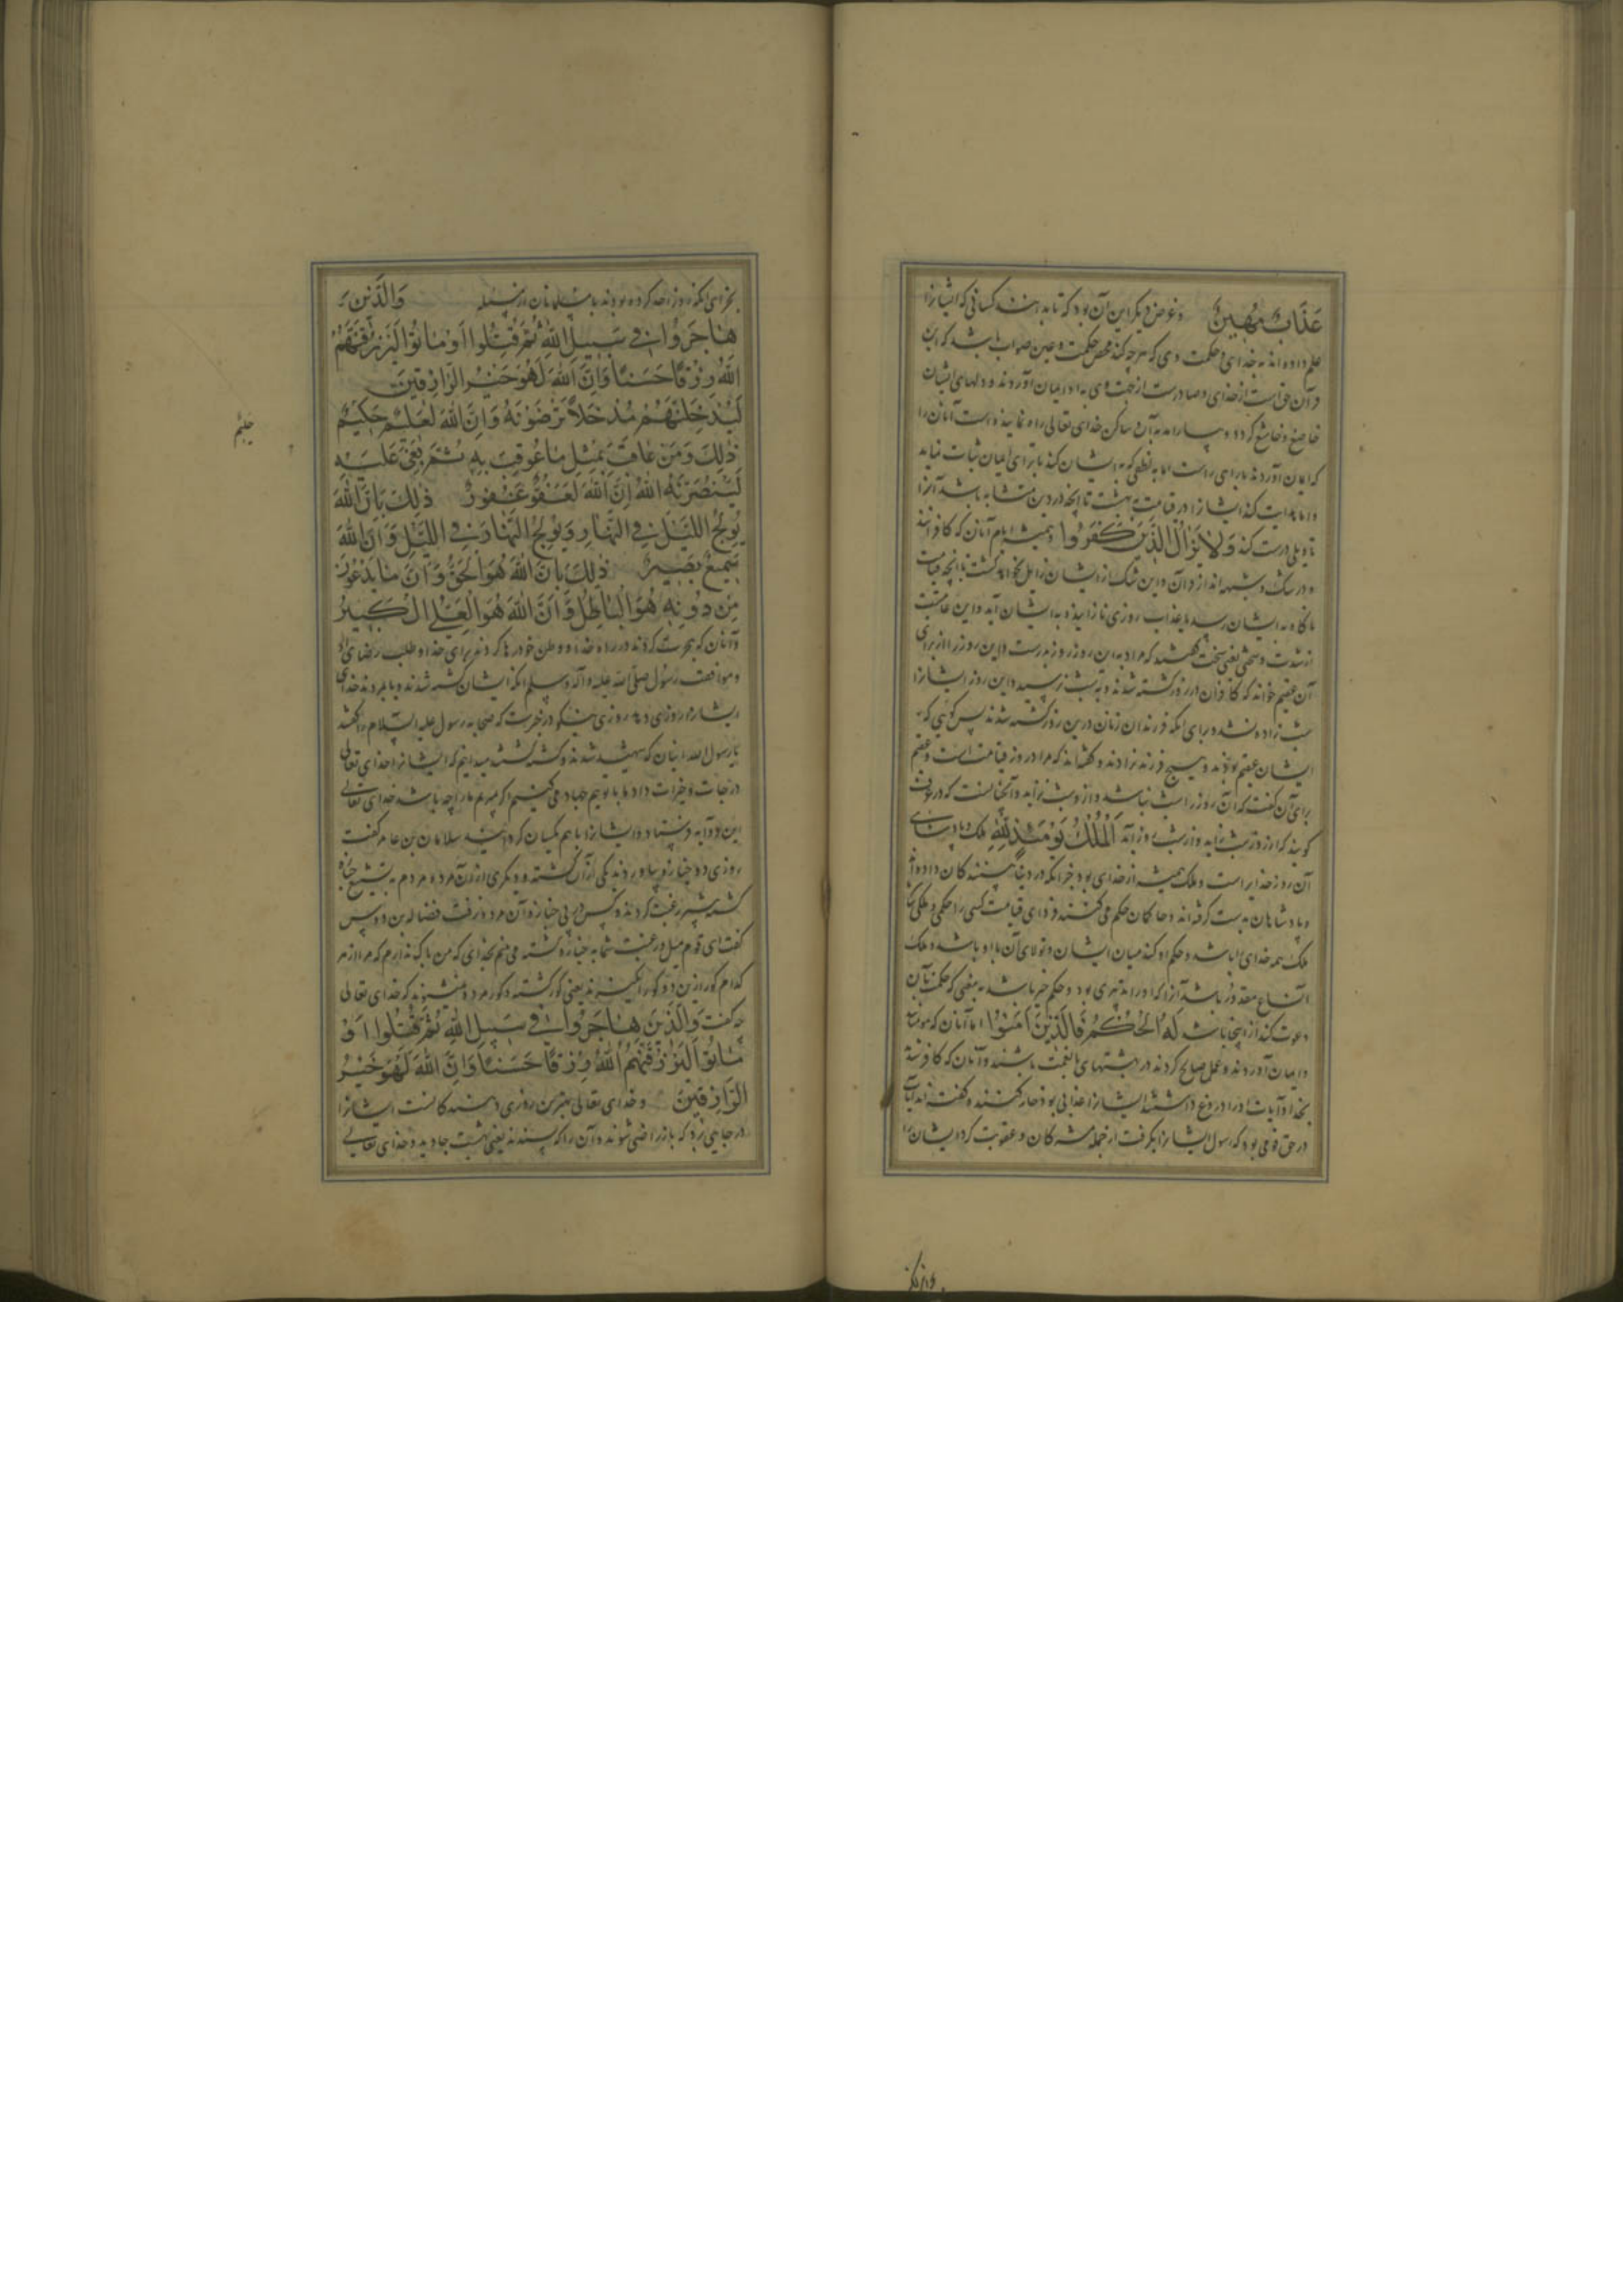 عَذَابٌ مُهِینٌ و غرض دیگر این آن بود که تا بدانند کسانی که ایشانرا
علم داده‌اند به خدای و حکمت وی که هرچه کند محض حکمت و عین صواب باشد که این
قرآن حق است از خدای و صادر است از جهت وی به او ایمان آورند و دلهای ایشان
خاضع و خاشع گردد و بیارامد به آن و ساکن خدای تعالی راه نماینده است آنان را
که ایمان آوردند براهی راست اما به لطفی که به ایشان کند تا بر ای ایمان ثبات نماید
و اما هدایت کند ایشانرا در قیامت به بهشت تا آنچه در دین متشابه باشد آنرا
تاویلی درست کند وَلَا یَزَالُ الَّذِینَ کَفَرُوا و همیشه ایام آنان که کافرانند
و در شک و شبهه‌اند از قرآن و این شک از ایشان زایل نخواهد گشت تا آنچه قیامت
ناگاه به ایشان رسد یا عذاب روزی نازاینده به ایشان آید و این عاقبت
از شدت و سختی یعنی سخت گفتند که مراد به این روز روز بدر است و این روز را از برای
آن عقیم خواند که کافران در روز کشته شدند و به شب نرسید و این روز ایشانرا
شب زاده نشد و برای آنکه فرزندان زنان درین روز کشته شدند پس گویی که
ایشان عقیم بودند و هیچ فرزند نزادند و گفته‌اند که مراد روز قیامت است و عقیم
برای آن گفت که آن روز را شب نباشد و از و شب نزاید و آنچنانست که در عرف
گویند که از روز شب زاید و از شب روز آید اَلْمُلْکُ یَوْمَئِذٍ لِلّٰهِ ملک و پادشاهی
آن روز خدایراست و ملک همیشه از خدای بود جز آنکه در دنیا بخشندگان داده‌اند
و پادشاهان بدست گرفته‌اند و حاکمان حکم می‌کنند فردای قیامت کسی را حکمی و ملکی نباشد
ملک همه خدای را باشد و حکم او کند میان ایشان و تولای آن با او باشد و ملک
اتساع مقدور باشد آنرا که او را تدبیری بود و حکم خبر باشد به معنی که حکمت بآن
دعوت کند از اینجا باشد لَهُ الْحُکْمُ فَالَّذِینَ آمَنُوا اما آنان که مومنانند
و ایمان آوردند و عمل صالح کردند در بهشتهای با نعمت باشند و آنان که کافر شدند
بخدا و آیات او را دروغ داشتند ایشانرا عذابی بود خوار کننده و گفته‌اند آیات
در حق قومی بود که رسول ایشانرا بگرفت از جمله مشرکان و عقوبت کرد ایشانرا
بجزای آنکه روز احد کرده بودند با مسلمانان از مثله وَالَّذِینَ
هَاجَرُوا فِی سَبِیلِ اللّٰهِ ثُمَّ قُتِلُوا أَوْ مَاتُوا لَیَرْزُقَنَّهُمُ
اللّٰهُ رِزْقًا حَسَنًا وَاِنَّ اللّٰهَ لَهُوَ خَیْرُ الرَّازِقِینَ
لَیُدْخِلَنَّهُمْ مُدْخَلًا یَرْضَوْنَهُ وَاِنَّ اللّٰهَ لَعَلِیمٌ حَکِیمٌ
ذٰلِکَ وَمَنْ عَاقَبَ بِمِثْلِ مَا عُوقِبَ بِهِ ثُمَّ بُغِیَ عَلَیْهِ
لَیَنْصُرَنَّهُ اللّٰهُ اِنَّ اللّٰهَ لَعَفُوٌّ غَفُورٌ ذٰلِکَ بِاَنَّ اللّٰهَ
یُولِجُ اللَّیْلَ فِی النَّهَارِ وَیُولِجُ النَّهَارَ فِی اللَّیْلِ وَاَنَّ اللّٰهَ
سَمِیعٌ بَصِیرٌ ذٰلِکَ بِاَنَّ اللّٰهَ هُوَ الْحَقُّ وَاَنَّ مَا یَدْعُونَ
مِنْ دُونِهِ هُوَ الْبَاطِلُ وَاَنَّ اللّٰهَ هُوَ الْعَلِیُّ الْکَبِیرُ
و آنان که هجرت کردند در راه خدا و وطن خود رها کردند برای خدا و طلب رضای او
و موافقت رسول صلی الله علیه و آله وسلم آنگه ایشان کشته شدند و یا مردند خدای
ایشانرا روزی دهد روزی نیکو در خبرست که صحابه رسول علیه السلام را گفتند
یا رسول الله اینان که شهید شدند و کشته گشتند میدانیم که ایشانرا خدای تعالی
درجات و خیرات داد ما با تو هم جهاد می‌کنیم اگر بمیریم ما را چه باشد خدای تعالی
این دو آیه فرستاد و ایشانرا با هم یکسان کردانید سلامان بن عامر گفت
روزی دو جنازه بیاوردند یکی از آن کشته و دیگری از آن مرده مردم به تشییع جنازه
کشته بیشتر رغبت کردند و کس در پی جنازه آن مرده نرفت فضاله بن دوس
گفت ای قوم میل و رغبت شما به جنازه کشته می‌بینم بخدای که من باک ندارم که مرا از هر
کدام گور ازین دو گور برانگیزند یعنی گور کشته و گور مرده نمی‌شنوید که خدای تعالی
چه گفت وَالَّذِینَ هَاجَرُوا فِی سَبِیلِ اللّٰهِ ثُمَّ قُتِلُوا اَوْ
مَاتُوا لَیَرْزُقَنَّهُمُ اللّٰهُ رِزْقًا حَسَنًا وَاِنَّ اللّٰهَ لَهُوَ خَیْرُ
الرَّازِقِینَ و خدای تعالی بهترین روزی دهندگانست ایشانرا
در جایی برد که باز راضی شوند و آن را که پسندند یعنی بهشت جاوید و خدای تعالی
حلیم